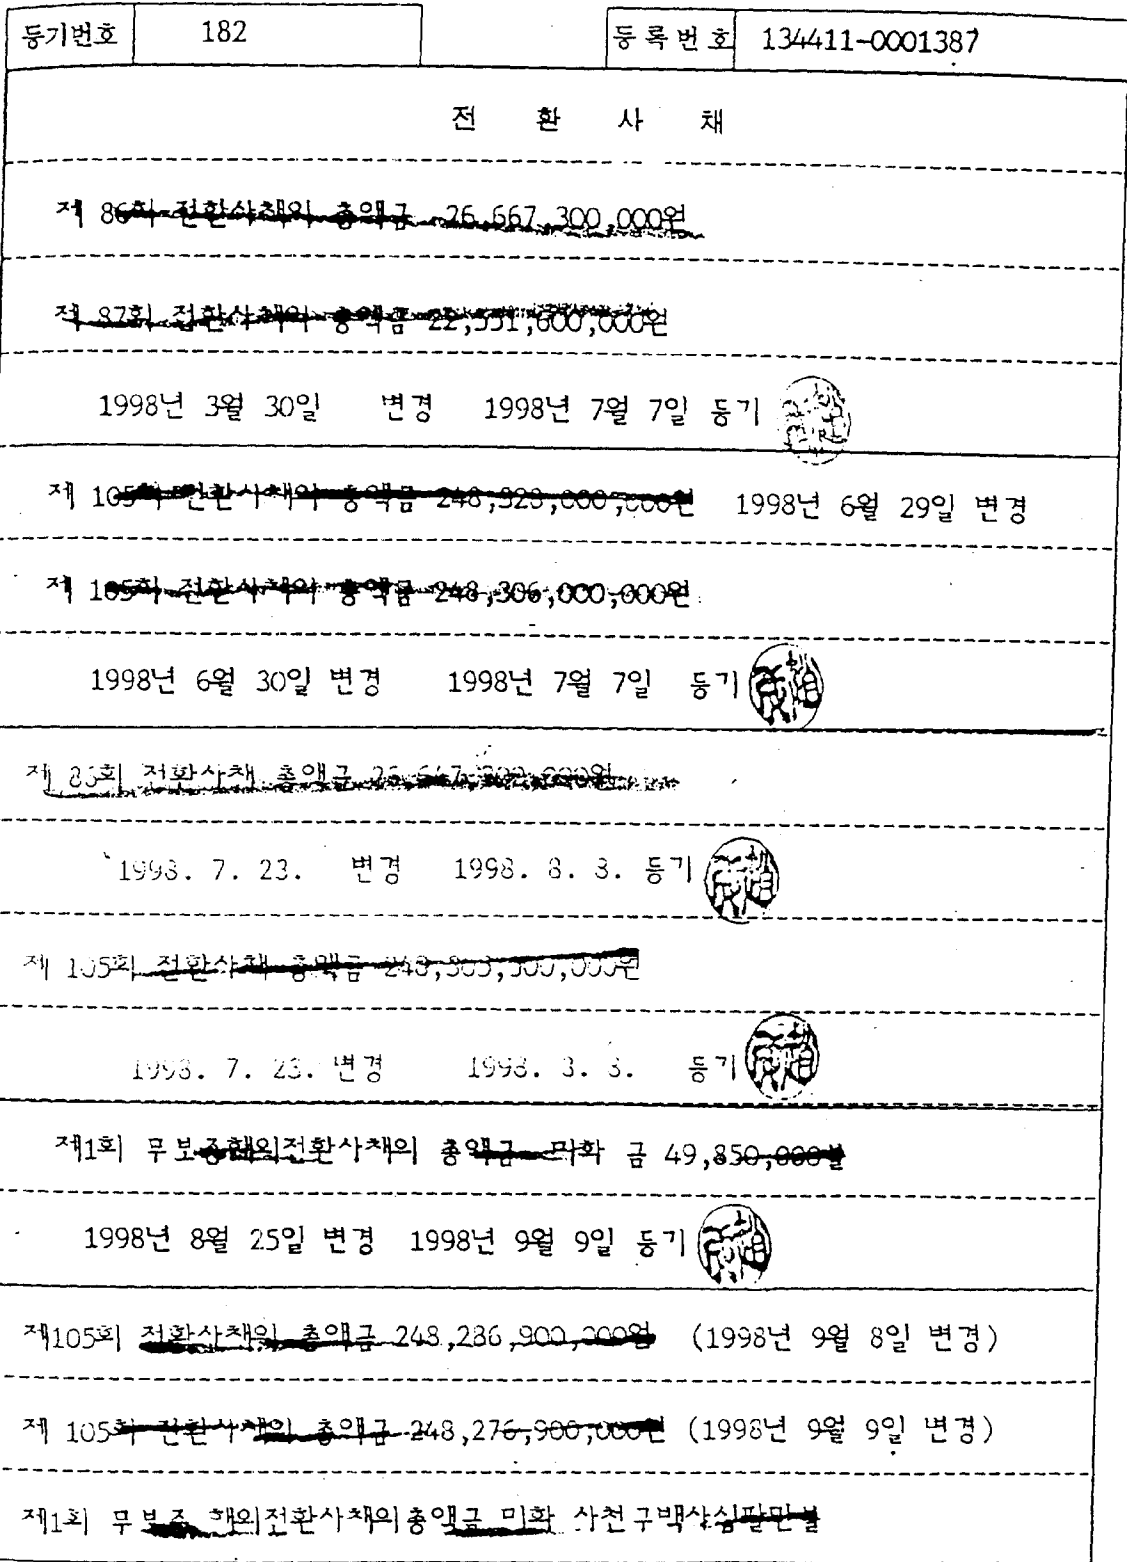 등기번호 182 등록번호 134411-0001387
전 환 사 채
제 86회 전환사채의 총액금 26,667,300,000원
제 87회 전환사채의 총액금 22,551,600,000원
1998년 3월 30일 변경 1998년 7월 7일 등기
제 105회 전환사채의 총액금 248,323,000,000원 1998년 6월 29일 변경
제 105회 전환사채의 총액금 248,306,000,000원
1998년 6월 30일 변경 1998년 7월 7일 등기
제 86회 전환사채 총액금
1998. 7. 23. 변경 1998. 8. 8. 등기
제 105회 전환사채 총액금
1998. 7. 23. 변경 1998. 8. 8. 등기
제1회 무보증해외전환사채의 총액금 미화 금 49,850,000불
1998년 8월 25일 변경 1998년 9월 9일 등기
제105회 전환사채의 총액금 248,286,900,000원 (1998년 9월 8일 변경)
제 105회 전환사채의 총액금 248,276,900,000원 (1998년 9월 9일 변경)
제1회 무보증 해외전환사채의총액금 미화 사천구백사십팔만불